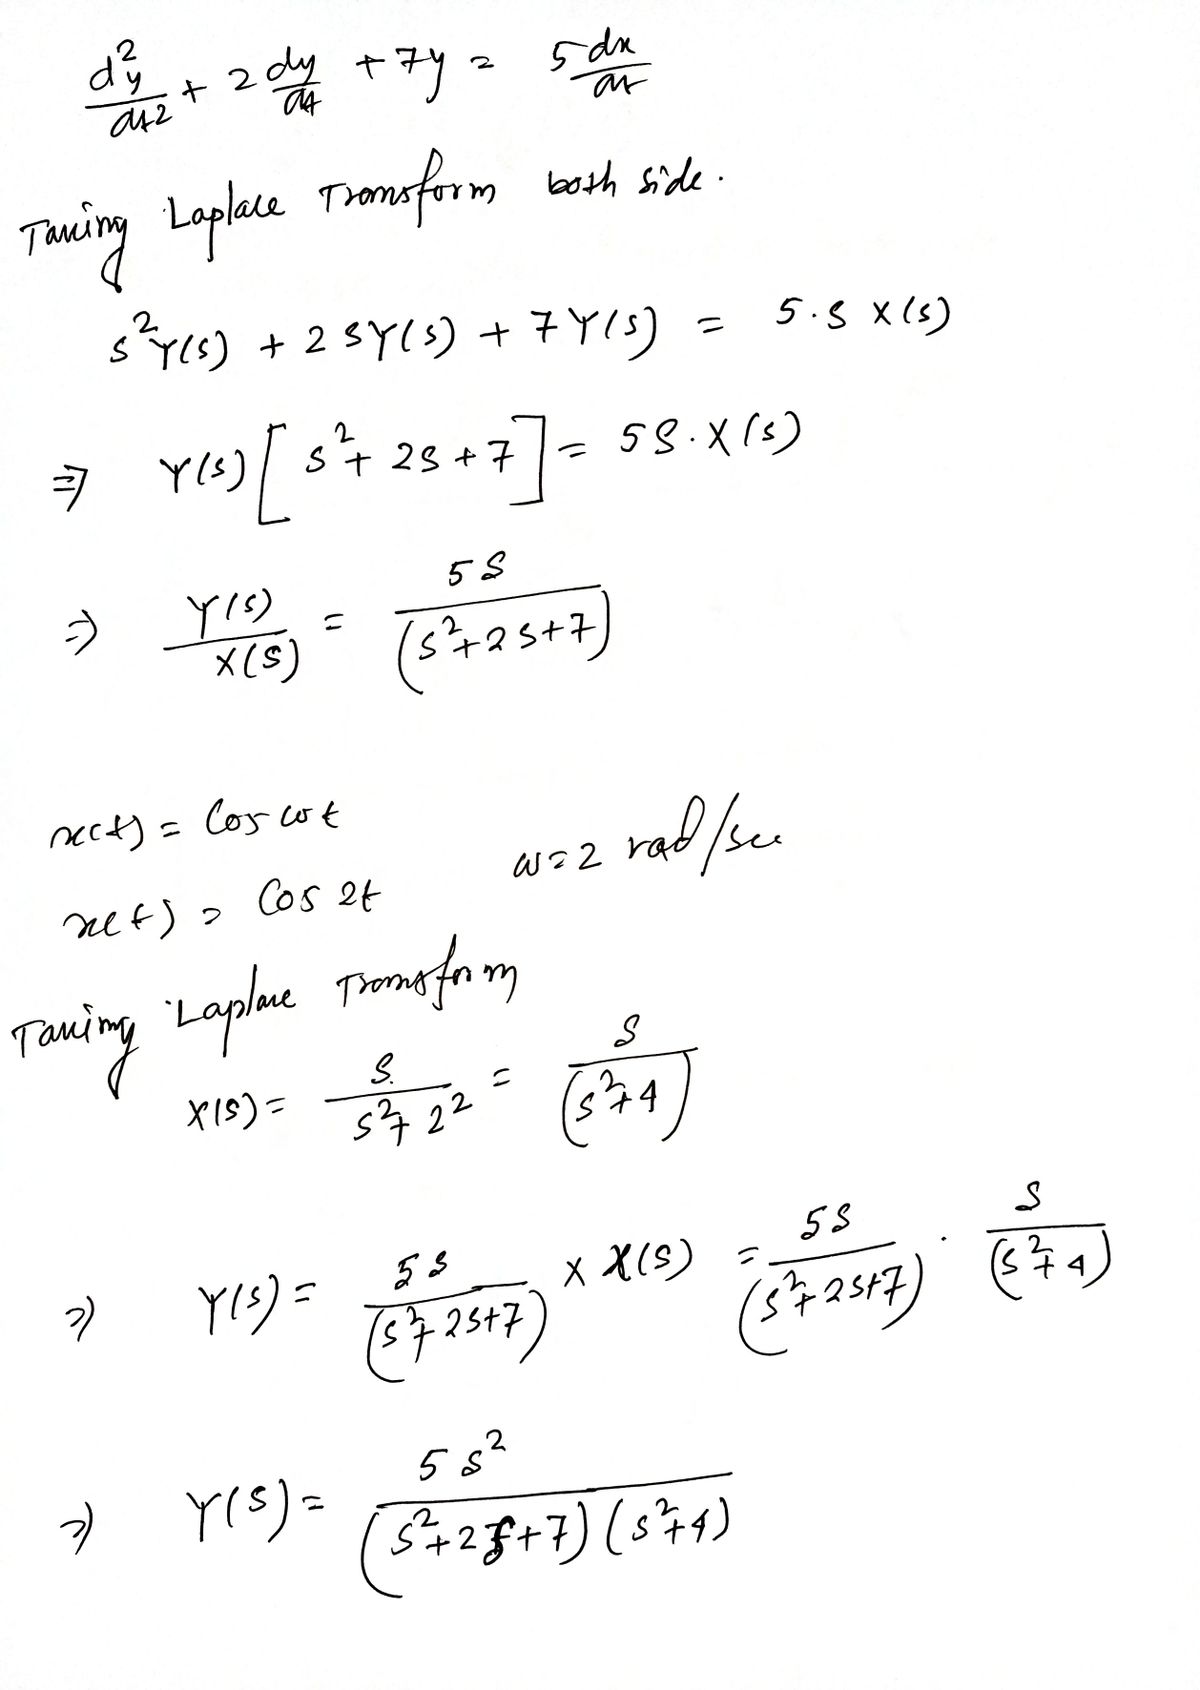 d²y/dt2 + 2 dy/dt + 7y = 5 dx/dt
Taking Laplace Transform both side.
s²Y(s) + 2sY(s) + 7Y(s) = 5.s X(s)
⇒ Y(s)[s²+2s+7] = 5s.X(s)
⇒ Y(s)/X(s) = 5s/(s²+2s+7)
x(t) = Cos ωt
ω=2 rad/sec
x(t) = Cos 2t
Taking Laplace Transform
X(s) = s/s²+2² = s/(s²+4)
⇒ Y(s) = 5s/(s²+2s+7) × X(s) = 5s/(s²+2s+7) . s/(s²+4)
⇒ Y(s) = 5s²/(s²+2s+7)(s²+4)